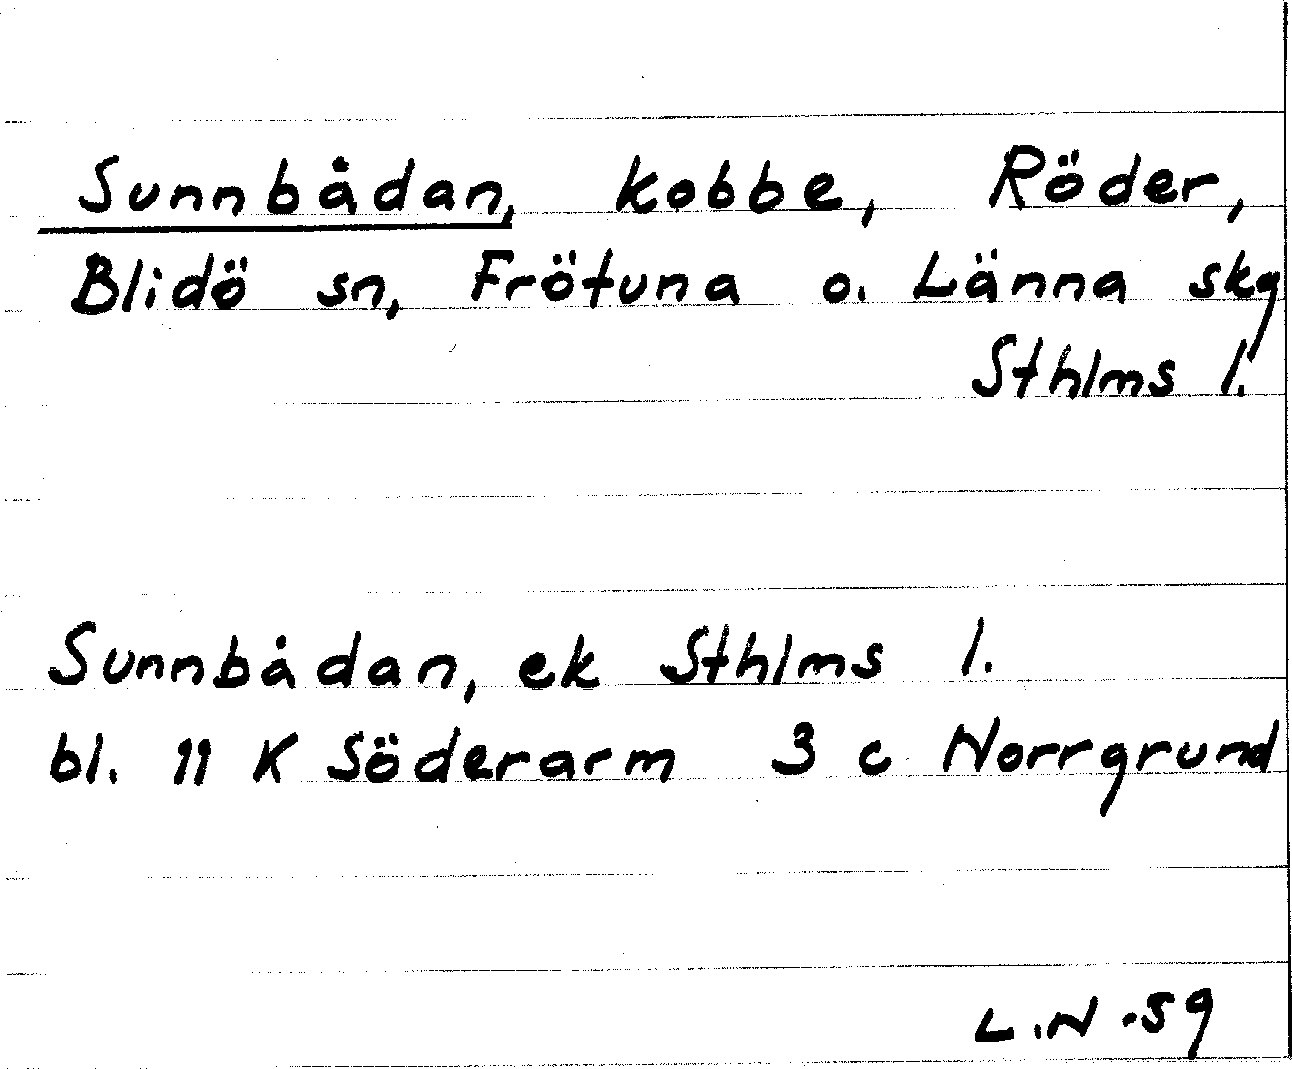 Sunnbådan, kobbe, Röder,
Blidö sn, Frötuna o. Länna skg
Sthlms l.
Sunnbådan, ek Sthlms l.
bl. 11 K Söderarm 3 c Norrgrund
L.N -59